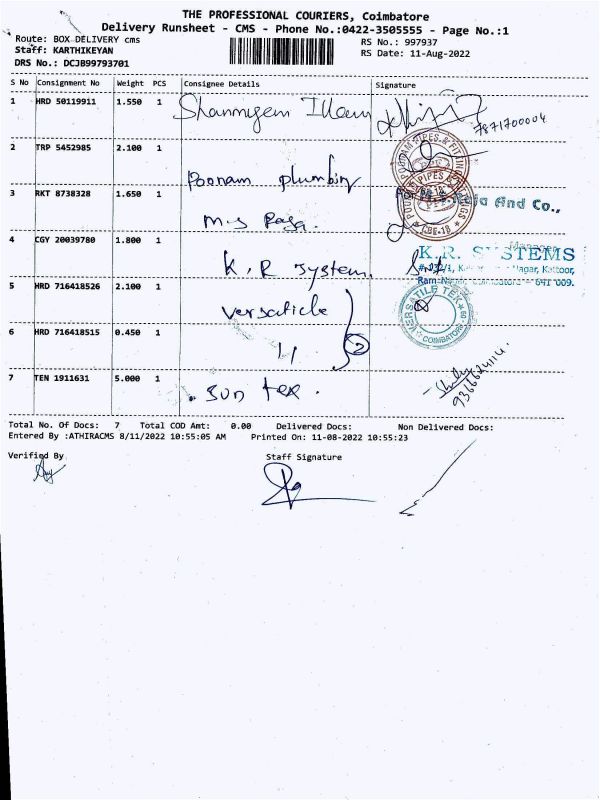 THE PROFESSIONAL COURIERS, Coimbatore
Delivery Runsheet - CMS - Phone No.:0422-3505555 - Page No.:1
Route: BOX DELIVERY cms
RS No.: 997937
Staff: KARTHIKEYAN
RS Date: 11-Aug-2022
DRS No.: DCJB99793701
S No Consignment No Weight PCS Consignee Details Signature
1 HRD 50119911 1.550 1 Shanmugam Illam
7871700004
2 TRP 5452985 2.100 1
Poonam plumbing
3 RKT 8738328 1.650 1
And Co.,
M.S Raja.
4 CGY 20039780 1.800 1
K.R. SYSTEMS
K.R system.
Nagar, Kattoor,
641 009.
5 HRD 716418526 2.100 1
versaticle
VERSATILE TEK
COIMBATORE
6 HRD 716418515 0.450 1
11 2
7 TEN 1911631 5.000 1
Sun tex.
9366624114
Total No. Of Docs: 7 Total COD Amt: 0.00 Delivered Docs: Non Delivered Docs:
Entered By :ATHIRACMS 8/11/2022 10:55:05 AM Printed On: 11-08-2022 10:55:23
Verified By Staff Signature